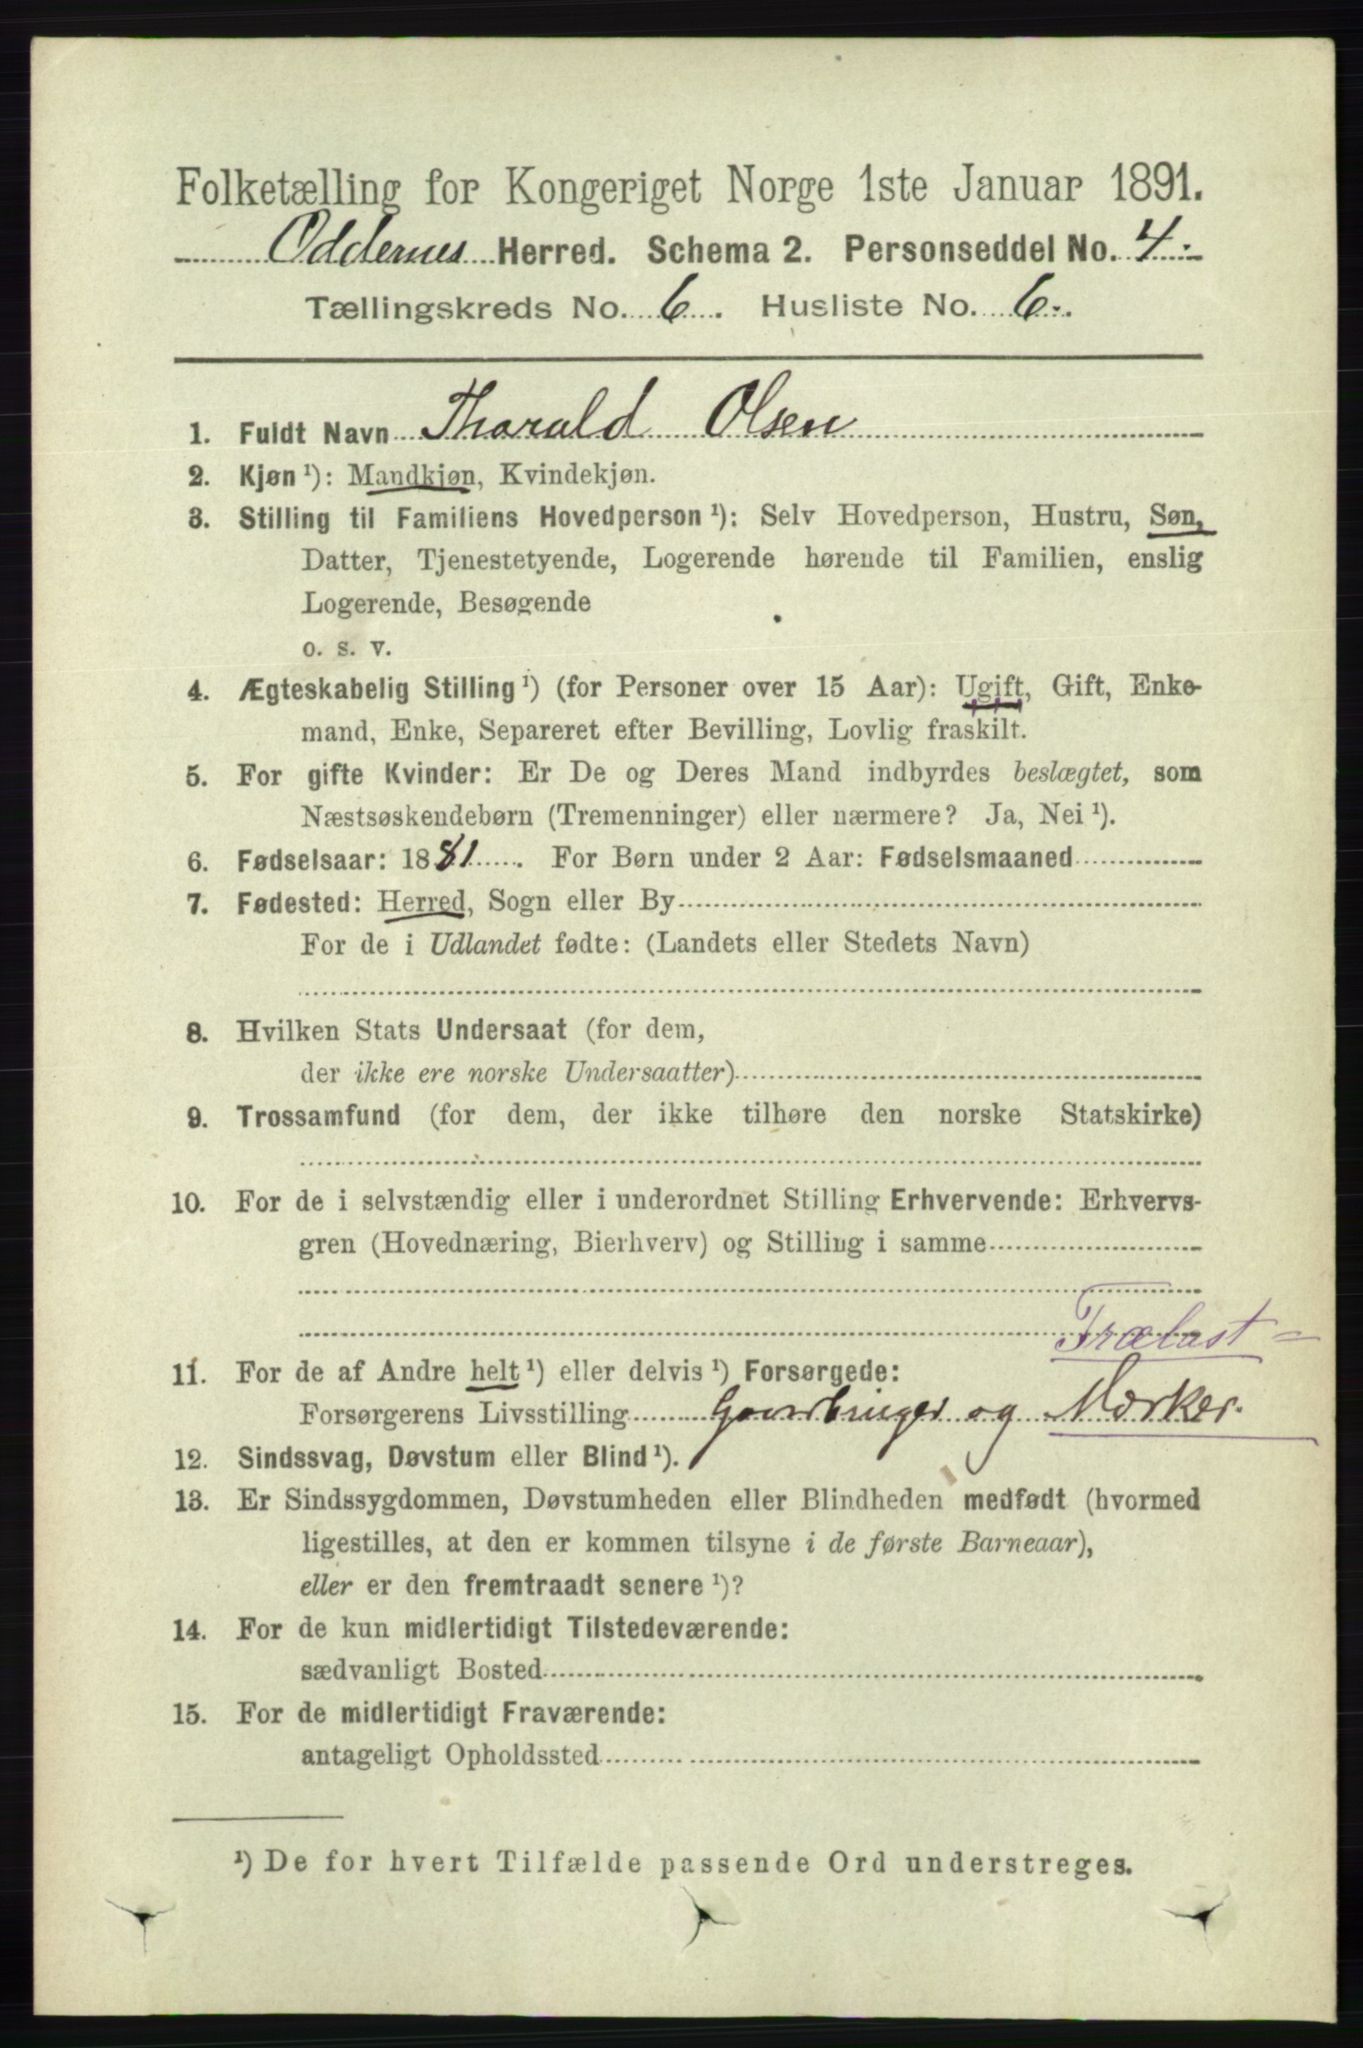 Folketælling for Kongeriget Norge 1ste Januar 1891.
Oddernes Herred. Schema 2. Personseddel No. 4.
Tællingskreds No. 6. Husliste No. 6.
1. Fuldt Navn Tharald Olsen
2. Kjøn ¹): Mandkjøn, Kvindekjøn.
3. Stilling til Familiens Hovedperson ¹): Selv Hovedperson, Hustru, Søn,
Datter, Tjenestetyende, Logerende hørende til Familien, enslig
Logerende, Besøgende
o. s. v.
4. Ægteskabelig Stilling ¹) (for Personer over 15 Aar): Ugift, Gift, Enke-
mand, Enke, Separeret efter Bevilling, Lovlig fraskilt.
5. For gifte Kvinder: Er De og Deres Mand indbyrdes beslægtet, som
Næstsøskendebørn (Tremenninger) eller nærmere? Ja, Nei ¹).
6. Fødselsaar: 1881. For Børn under 2 Aar: Fødselsmaaned
7. Fødested: Herred, Sogn eller By
For de i Udlandet fødte: (Landets eller Stedets Navn)
8. Hvilken Stats Undersaat (for dem,
der ikke ere norske Undersaatter)
9. Trossamfund (for dem, der ikke tilhøre den norske Statskirke)
10. For de i selvstændig eller i underordnet Stilling Erhvervende: Erhvervs-
gren (Hovednæring, Bierhverv) og Stilling i samme
Trælast-
11. For de af Andre helt ¹) eller delvis ¹) Forsørgede:
Forsørgerens Livsstilling Gaardbruger og Mærker.
12. Sindssvag, Døvstum eller Blind ¹).
13. Er Sindssygdommen, Døvstumheden eller Blindheden medfødt (hvormed
ligestilles, at den er kommen tilsyne i de første Barneaar),
eller er den fremtraadt senere ¹)?
14. For de kun midlertidigt Tilstedeværende:
sædvanligt Bosted
15. For de midlertidigt Fraværende:
antageligt Opholdssted
¹) De for hvert Tilfælde passende Ord understreges.